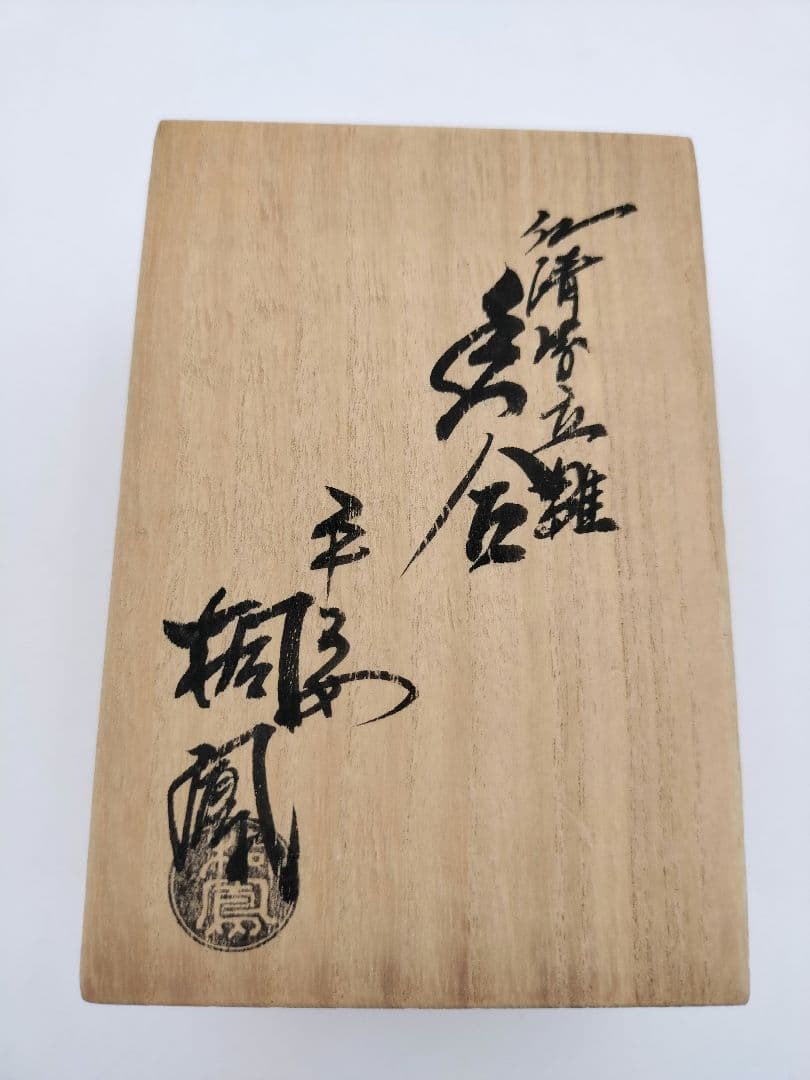 仁清写立雛
香合
平安
桐鳳